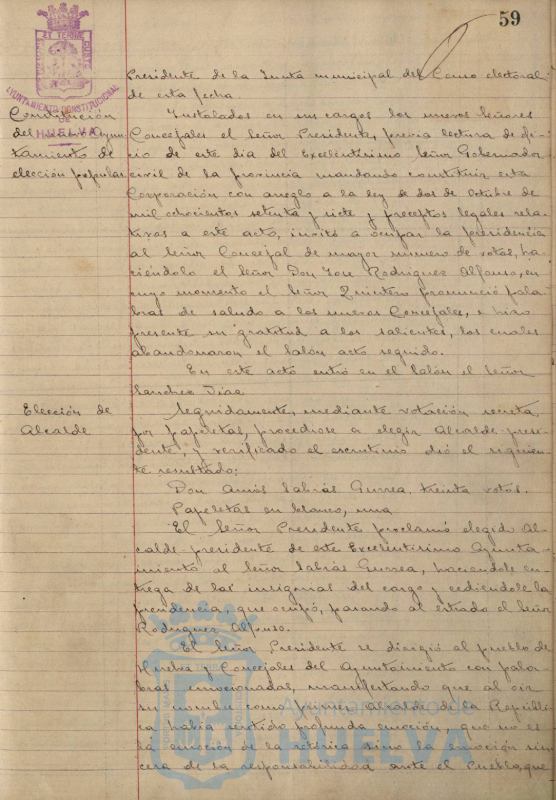 59
AYUNTAMIENTO CONSTITUCIONAL
DE
HUELVA
Presidente de la Junta municipal del Censo electoral
de esta fecha
Constitución
del Ayun-
tamiento de
elección popular
Instalados en sus cargos los nuevos Señores
Concejales el Señor Presidente, previa lectura de ofi-
cio de este día del Excelentísimo Señor Gobernador
civil de la provincia mandando constituir esta
Corporación con arreglo a la ley de dos de Octubre de
mil ochocientos setenta y siete y preceptos legales rela-
tivos a este acto, invitó a ocupar la presidencia
al Señor Concejal de mayor número de votos, ha-
ciéndolo el Señor Don José Rodríguez Alfonso, en
cuyo momento el Señor Quintero pronunció pala-
bras de saludo a los nuevos Concejales, e hizo
presente su gratitud a los salientes, los cuales
abandonaron el Salón acto seguido.
En este acto entró en el Salón el Señor
Sánchez Díaz
Elección de
Alcalde
Seguidamente, mediante votación secreta,
por papeletas, procedióse a elegir Alcalde-presi-
dente, y verificado el escrutinio dió el siguien-
te resultado:
Don Amós Sabrás Gurrea, treinta votos.
Papeletas en blanco, una
El Señor Presidente proclamó elegido Al-
calde-presidente de este Excelentísimo Ayunta-
miento al Señor Sabrás Gurrea, haciéndole en-
trega de las insignias del cargo y cediéndole la
presidencia, que ocupó, pasando al estrado el Señor
Rodríguez Alfonso.
El Señor Presidente se dirigió al pueblo de
Huelva y Concejales del Ayuntamiento con pala-
bras emocionadas, manifestando que al oir
su nombre como primer Alcalde de la Repúbli-
ca había sentido profunda emoción, que no es
la emoción de la retórica sino la emoción sin-
cera de la responsabilidad ante el Pueblo, que
Ayuntamiento de
HUELVA